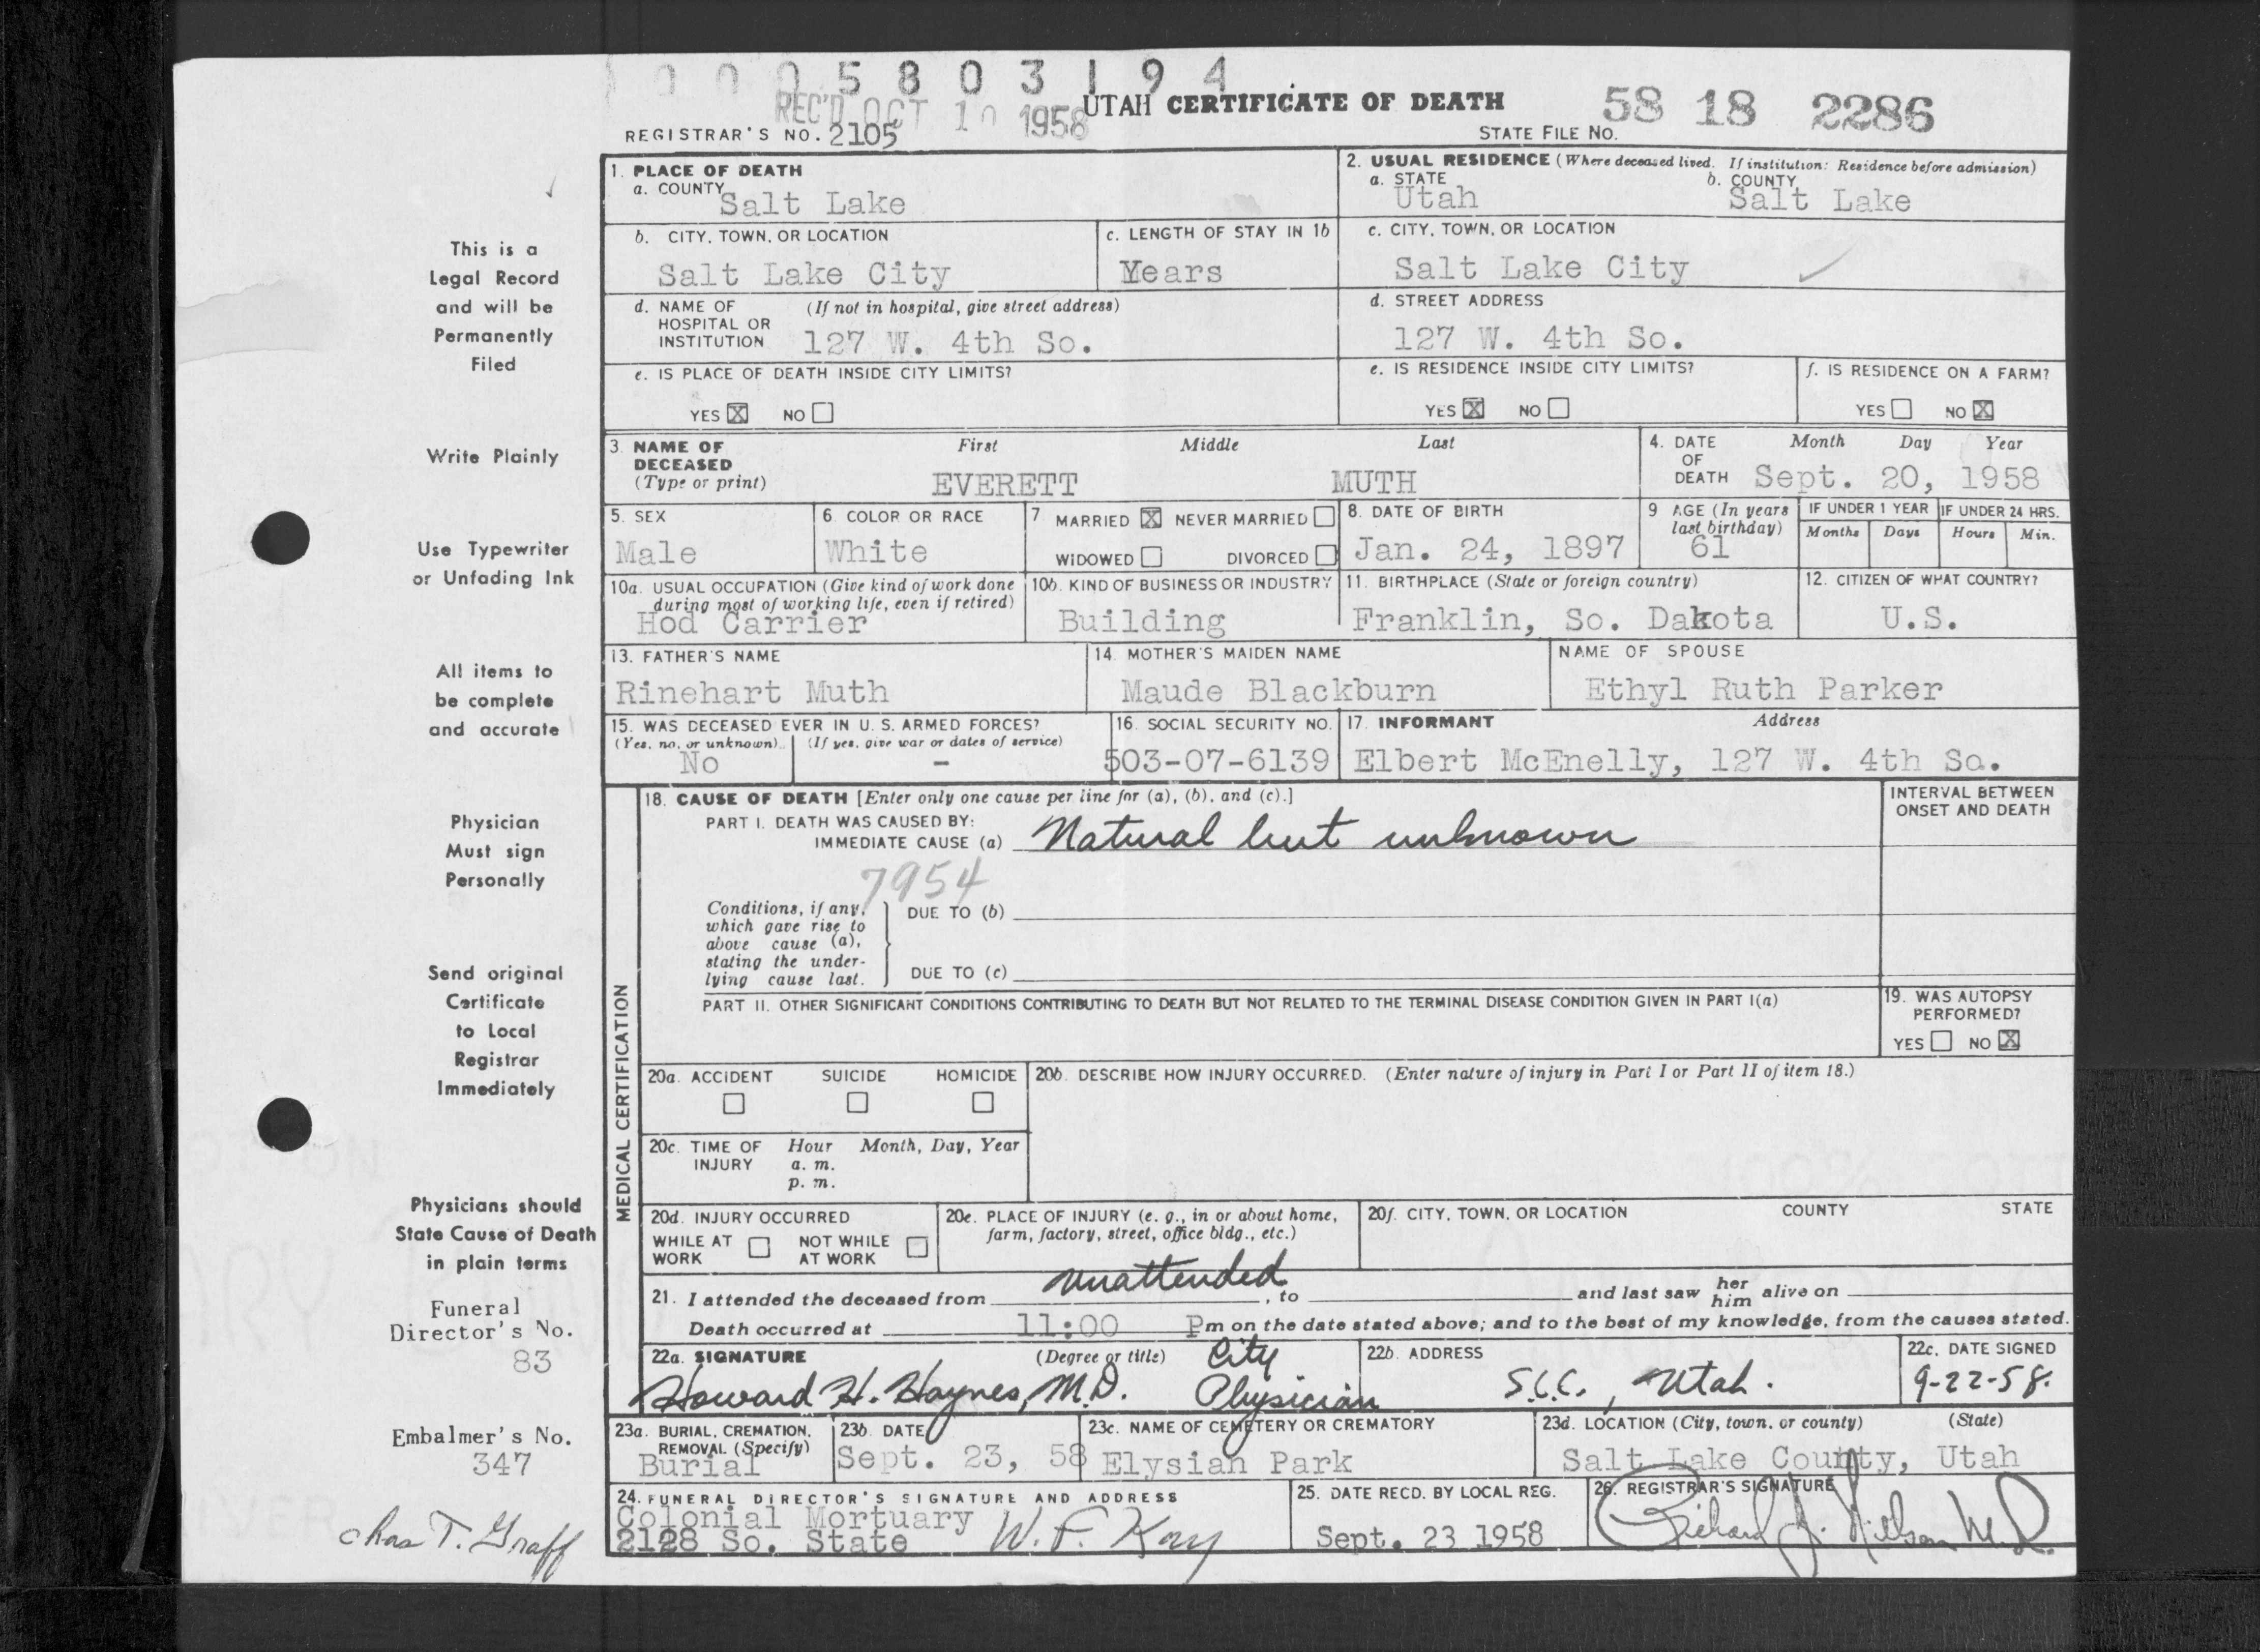 0005803194
REC'D OCT 10 1958
UTAH CERTIFICATE OF DEATH
58 18 2286
REGISTRAR'S NO. 2105
STATE FILE NO.
1. PLACE OF DEATH
a. COUNTY
Salt Lake
2. USUAL RESIDENCE (Where deceased lived. If institution: Residence before admission)
a. STATE
Utah
b. COUNTY
Salt Lake
b. CITY, TOWN, OR LOCATION
Salt Lake City
c. LENGTH OF STAY IN 1b
Years
c. CITY, TOWN, OR LOCATION
Salt Lake City
d. NAME OF (If not in hospital, give street address)
HOSPITAL OR
INSTITUTION 127 W. 4th So.
d. STREET ADDRESS
127 W. 4th So.
e. IS PLACE OF DEATH INSIDE CITY LIMITS?
YES X NO
e. IS RESIDENCE INSIDE CITY LIMITS?
YES X NO
f. IS RESIDENCE ON A FARM?
YES NO X
3. NAME OF First Middle Last
DECEASED
(Type or print)
EVERETT MUTH
4. DATE Month Day Year
OF
DEATH Sept. 20, 1958
5. SEX
Male
6. COLOR OR RACE
White
7. MARRIED X NEVER MARRIED
WIDOWED DIVORCED
8. DATE OF BIRTH
Jan. 24, 1897
9. AGE (In years
last birthday)
61
IF UNDER 1 YEAR
Months Days
IF UNDER 24 HRS.
Hours Min.
10a. USUAL OCCUPATION (Give kind of work done
during most of working life, even if retired)
Hod Carrier
10b. KIND OF BUSINESS OR INDUSTRY
Building
11. BIRTHPLACE (State or foreign country)
Franklin, So. Dakota
12. CITIZEN OF WHAT COUNTRY?
U.S.
13. FATHER'S NAME
Rinehart Muth
14. MOTHER'S MAIDEN NAME
Maude Blackburn
NAME OF SPOUSE
Ethyl Ruth Parker
15. WAS DECEASED EVER IN U. S. ARMED FORCES?
(Yes, no, or unknown) (If yes, give war or dates of service)
No -
16. SOCIAL SECURITY NO.
503-07-6139
17. INFORMANT Address
Elbert McEnelly, 127 W. 4th So.
MEDICAL CERTIFICATION
18. CAUSE OF DEATH [Enter only one cause per line for (a), (b), and (c).]
PART I. DEATH WAS CAUSED BY:
IMMEDIATE CAUSE (a) Natural but unknown
7954
Conditions, if any,
which gave rise to
above cause (a),
stating the under-
lying cause last.
DUE TO (b)
DUE TO (c)
INTERVAL BETWEEN
ONSET AND DEATH
PART II. OTHER SIGNIFICANT CONDITIONS CONTRIBUTING TO DEATH BUT NOT RELATED TO THE TERMINAL DISEASE CONDITION GIVEN IN PART I(a)
19. WAS AUTOPSY
PERFORMED?
YES NO X
20a. ACCIDENT SUICIDE HOMICIDE
20b. DESCRIBE HOW INJURY OCCURRED. (Enter nature of injury in Part I or Part II of item 18.)
20c. TIME OF Hour Month, Day, Year
INJURY a. m.
p. m.
20d. INJURY OCCURRED
WHILE AT NOT WHILE
WORK AT WORK
20e. PLACE OF INJURY (e. g., in or about home,
farm, factory, street, office bldg., etc.)
20f. CITY, TOWN, OR LOCATION COUNTY STATE
21. I attended the deceased from unattended, to and last saw her him alive on
Death occurred at 11:00 Pm on the date stated above; and to the best of my knowledge, from the causes stated.
22a. SIGNATURE (Degree or title)
Howard H. Haynes, M.D. City Physician
22b. ADDRESS
S.L.C., Utah.
22c. DATE SIGNED
9-22-58.
23a. BURIAL, CREMATION,
REMOVAL (Specify)
Burial
23b. DATE
Sept. 23, 58
23c. NAME OF CEMETERY OR CREMATORY
Elysian Park
23d. LOCATION (City, town, or county) (State)
Salt Lake County, Utah
24. FUNERAL DIRECTOR'S SIGNATURE AND ADDRESS
Colonial Mortuary
2128 So. State W. F. Kay
25. DATE RECD. BY LOCAL REG.
Sept. 23 1958
26. REGISTRAR'S SIGNATURE
Richard J. Nilson M.D.
This is a
Legal Record
and will be
Permanently
Filed
Write Plainly
Use Typewriter
or Unfading Ink
All items to
be complete
and accurate
Physician
Must sign
Personally
Send original
Certificate
to Local
Registrar
Immediately
Physicians should
State Cause of Death
in plain terms
Funeral
Director's No.
83
Embalmer's No.
347
Chas T. Graff